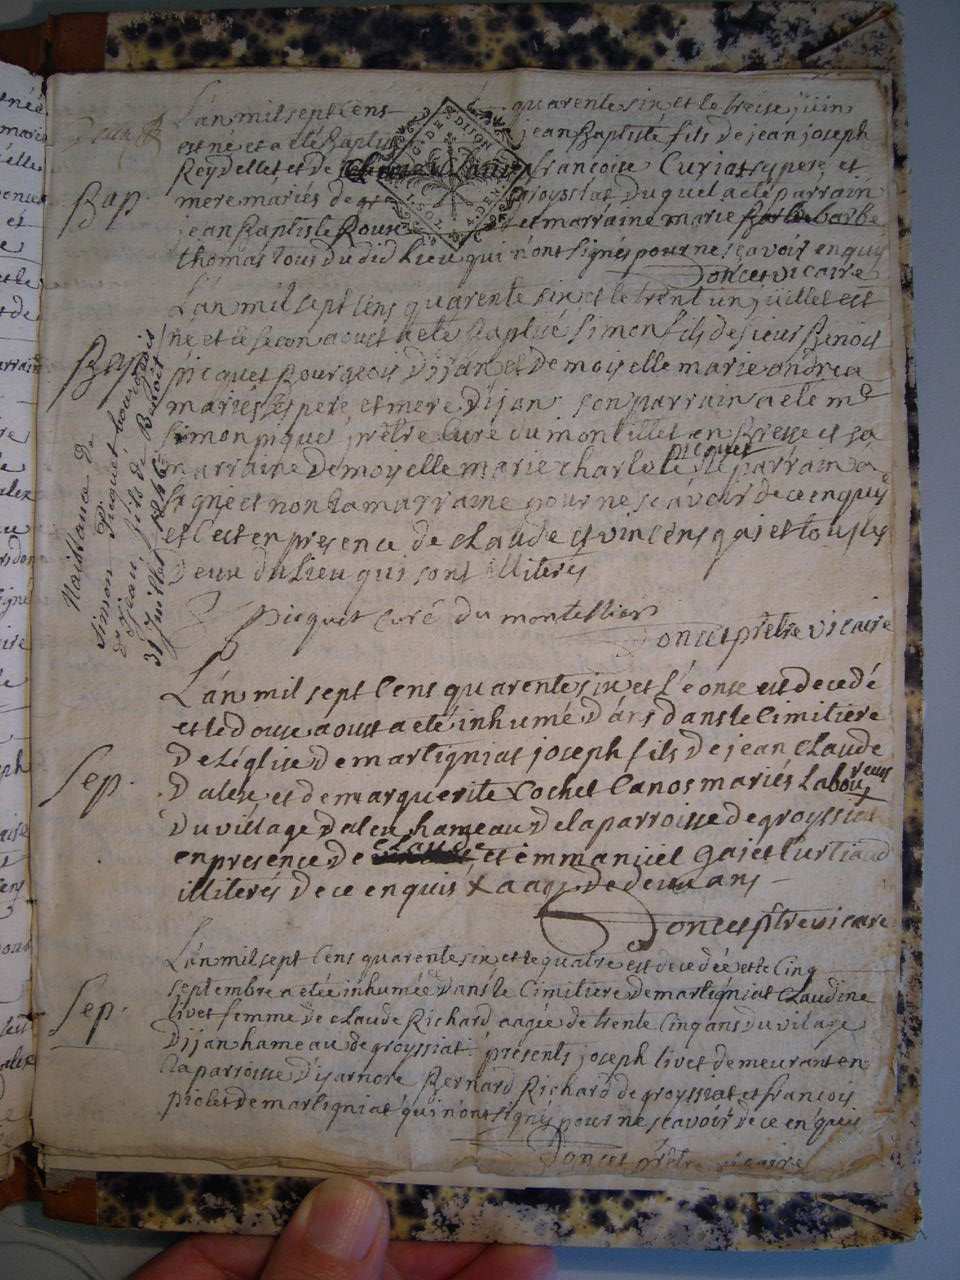 L'an mil sept Cens quarente six et le treise juin
est né et a eté Baptisé jean Baptiste fils de jean joseph
Reydellet et de françoise Curiat sy pere et
Bap.
mere mariés de groyssiat, duquel a eté parrain
jean Baptiste Roux et marraine marie Barbe
thomas tous dudid Lieu qui n'ont signés pour ne sçavoir enquis
Doncet vicaire
GDE DIJON
I. SOL 4 DEN.
L'an mil sept Cens quarente six et le trent un juillet est
Bap
né et le segon aoust a eté Baptisé Simon fils de sieus Benoit
picquet Bourgeois Dijan et Demoiselle marie andrea
mariés ses pere et mere Dijan. son parrain a eté mre
simon pique, prêtre Curé du montillet en Bresse et sa
marraine demoyselle marie charlote picquet le parrain a
signé et non la marraine pour ne sçavoir de ce enquis
et C'est en presence de claude et vincens gajet tous les
deux du lieu qui sont illiterés
Naissance de
Simon Picquet bourgeois
de Jean, fils de Benoit
31 Juillet 1746
Picquet Curé du montellier
Doncet prêtre vicaire
L'an mil sept Cens quarente six et l'éonse est decedé
et le douse aoust a eté inhumé dans dans le Cimitiere
de L'église de martigniat joseph fils de jean claude
Sep.
Dalex et de marguerite Cochet Canos mariés Laboureurs
du village dalex hameau de la parroisse de groyssiat
en presence de claude et emmanüel gajet Curtiaud
illiterés de ce enquis x aagé de deux ans
Doncet ptre vicare
L'an mil sept Cens quarente six et le quatre est decedée et le Cinq
septembre a etée inhumée dans le Cimitiere de martigniat Claudine
Sep.
livet femme de claude Richard aagée de trente Cinq ans du vilage
Dijan hameau de groyssiat. présents joseph livet demeurant en
la parroisse d'isarnore Bernard Richard de groyssiat et françois
piolet de martigniat qui n'ont signés pour ne sçavoir de ce enquis
Doncet prêtre vicaire